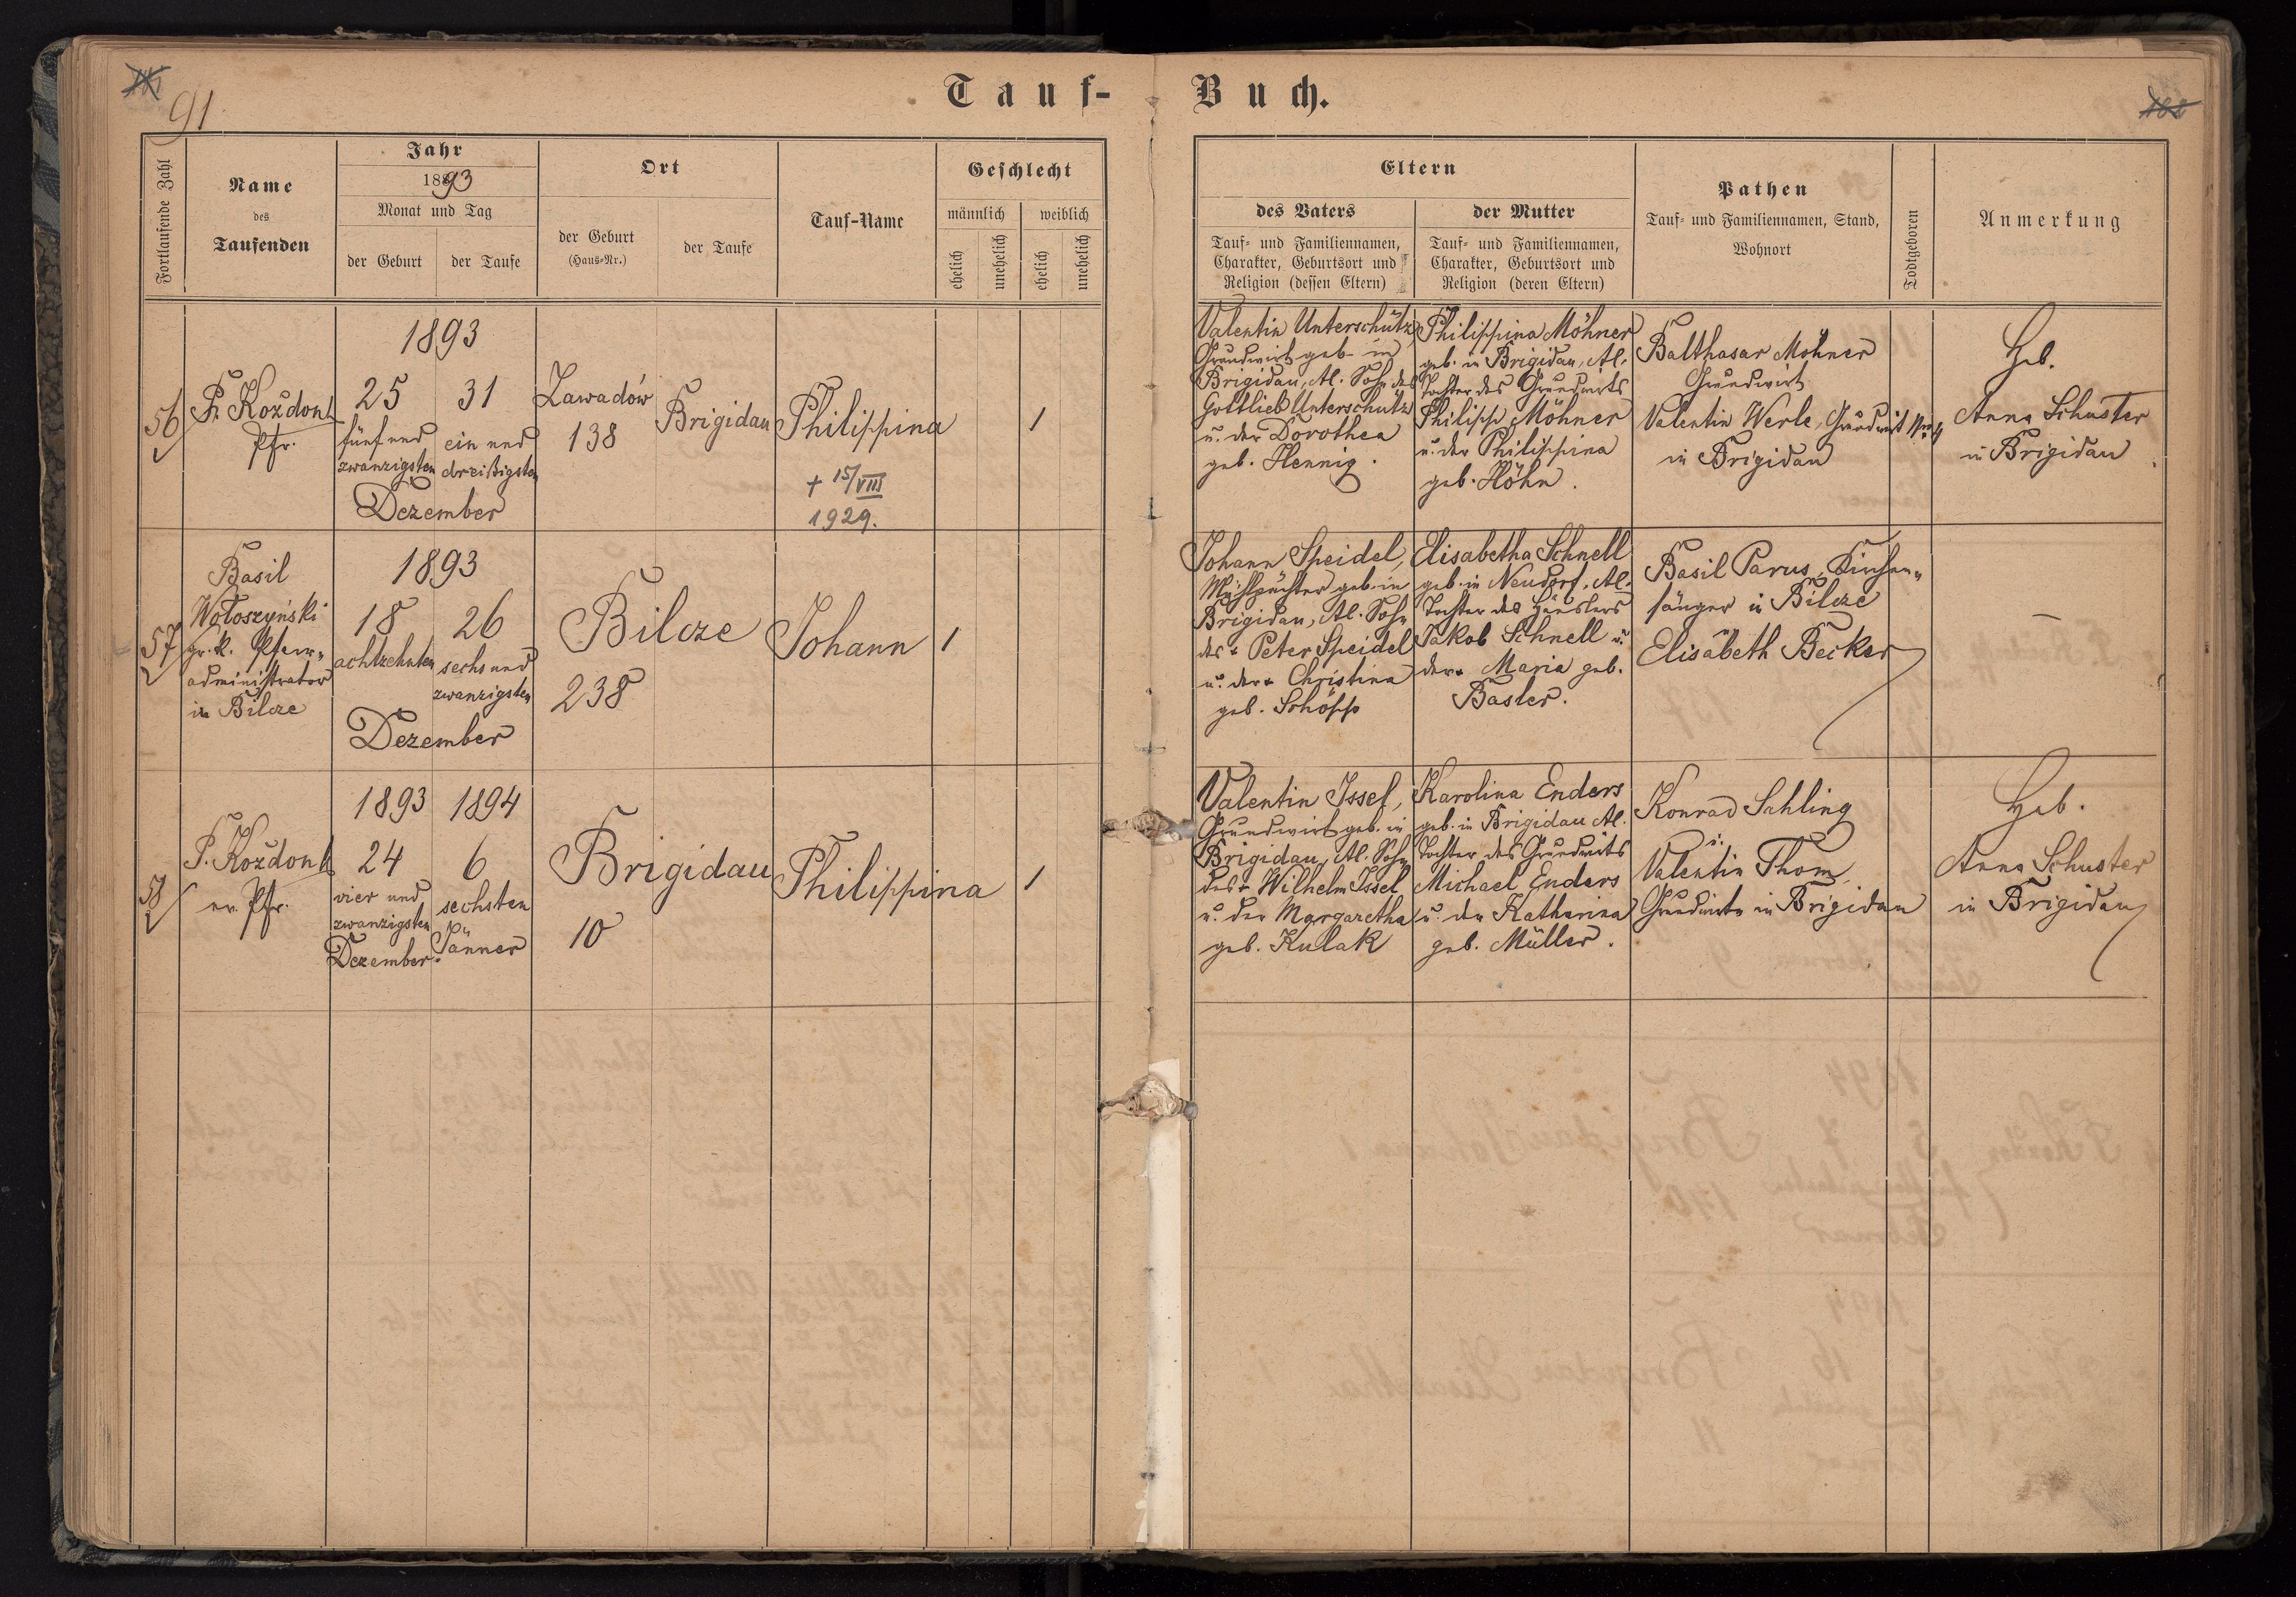 91
Tauf-Buch.
Fortlaufende Zahl
Name
des
Taufenden
Jahr
1893
Monat und Tag
der Geburt
der Taufe
Ort
der Geburt
(Haus-Nr.)
der Taufe
Tauf-Name
Geschlecht
männlich
weiblich
ehelich
unehelich
ehelich
unehelich
Eltern
des Vaters
Tauf- und Familiennamen,
Charakter, Geburtsort und
Religion (dessen Eltern)
der Mutter
Tauf- und Familiennamen,
Charakter, Geburtsort und
Religion (deren Eltern)
Pathen
Tauf- und Familiennamen, Stand,
Wohnort
Todtgeboren
Anmerkung
56
Koždonh
Pfr.
1893
25
fünf und
zwanzigsten
31
ein und
dreißigsten
Dezember
Zawadów
138
Brigidau
Philippina
+ 15/VIII
1929.
1
Valentin Unterschütz,
Grundwirt geb. in
Brigidau, Al. Sohn des
Gottlieb Unterschütz
u. der Dorothea
geb. Hennig.
Philippina Möhner
geb. in Brigidau, Al.
Tochter des Grundwirts
Philipp Möhner
u. der Philippina
geb. Höhn.
Balthasar Möhner
Grundwirt
Valentin Werle, Grundwirt
in Brigidau
Heb.
Anna Schuster
in Brigidau
57
Basil
Wołoszyński
gr. k. Pfarr-
administrator
in Bilcze
1893
18
achtzehnten
26
sechs und
zwanzigsten
Dezember
Bilcze
238
Johann
1
Johann Speidel,
Mühlpächter geb. in
Brigidau, Al. Sohn
des + Peter Speidel
u. der + Christina
geb. Schöpp
Elisabetha Schnell
geb. in Neudorf, Al.
Tochter des Häuslers
Jakob Schnell u.
der + Maria geb.
Basler.
Basil Parus, Kirchen-
sänger in Bilcze
Elisabeth Becker
–
58
P. Koždonh
ev. Pfr.
1893
24
vier und
zwanzigsten
Dezember
1894
6
sechsten
Jänner
Brigidau
10
Philippina
1
Valentin Issel,
Grundwirt geb. in
Brigidau, Al. Sohn
des + Wilhelm Issel
u. der Margaretha
geb. Kulak
Karolina Enders
geb. in Brigidau Al.
Tochter des Grundwirts
Michael Enders
u. der Katharina
geb. Müller.
Konrad Sahling
u.
Valentin Thom,
Grundwirte in Brigidau
Heb.
Anna Schuster
in Brigidau